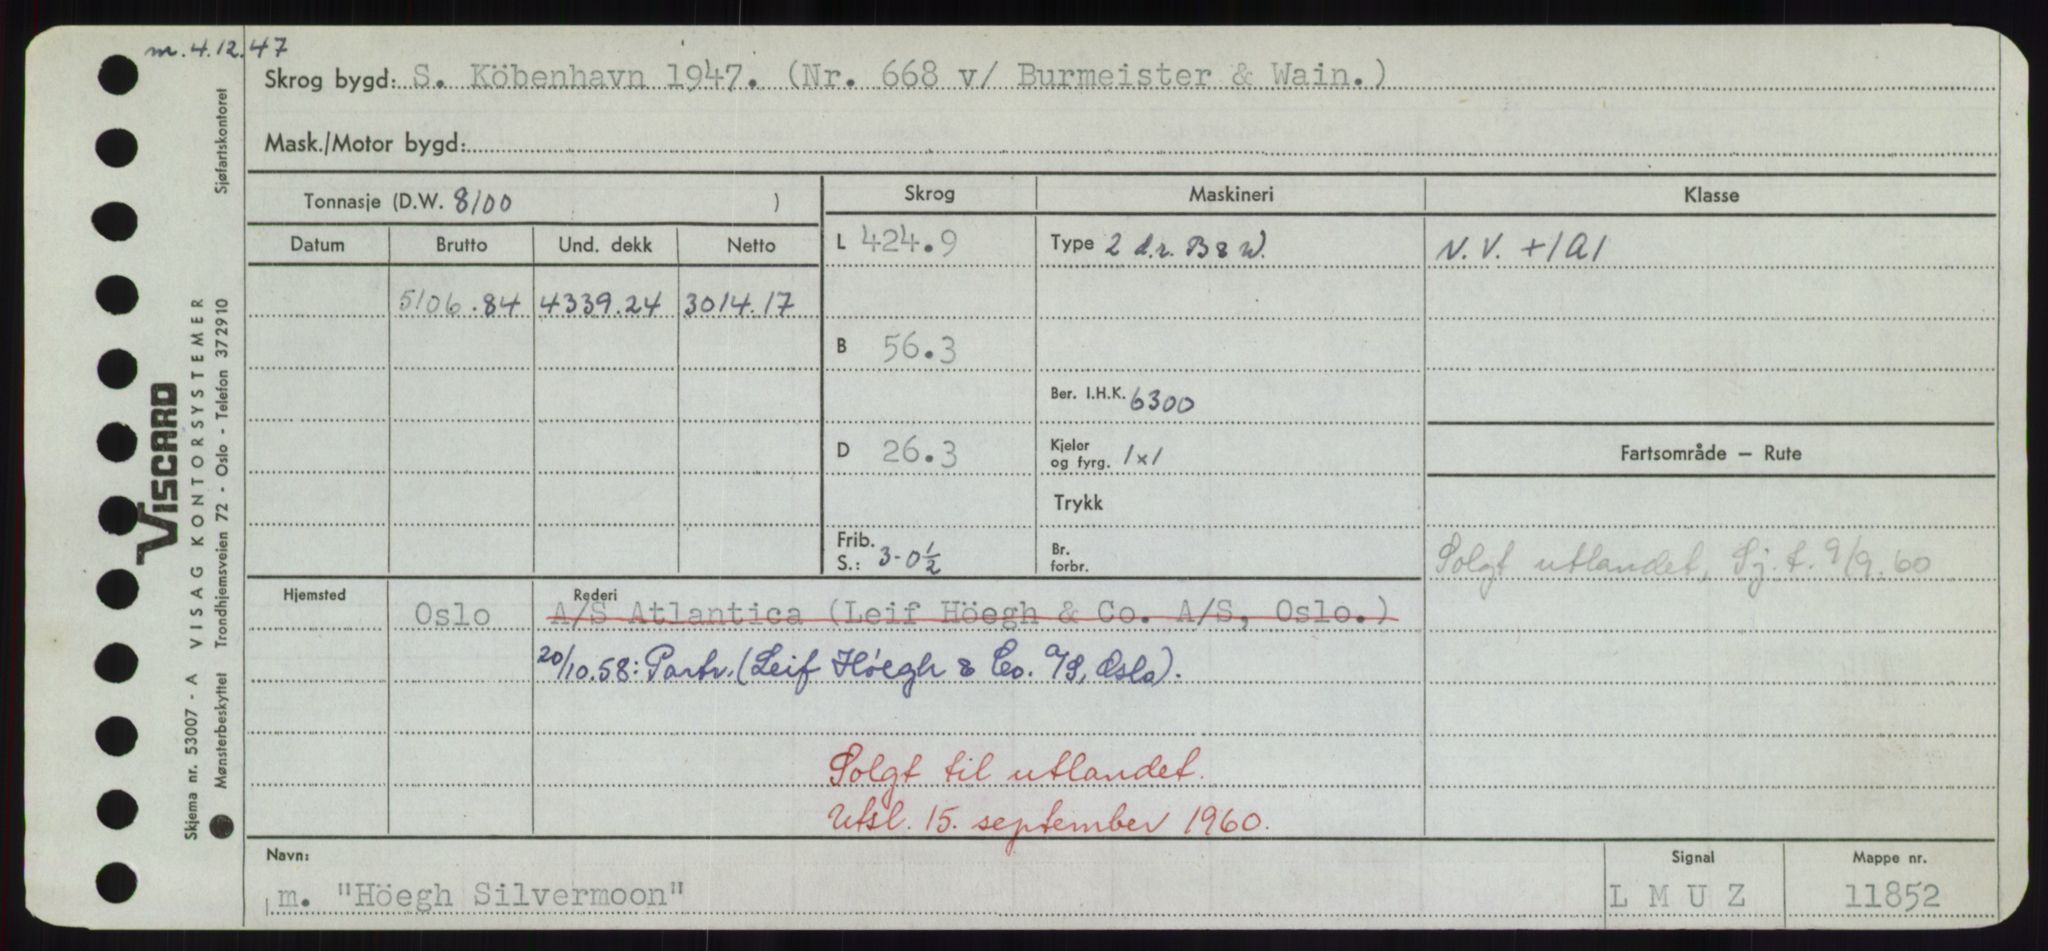 m. 4.12.47
Skrog bygd: S. Köbenhavn 1947. (Nr. 668 v/ Burmeister & Wain.)
Mask./Motor bygd:
Tonnasje (D.W. 8100 )
Skrog Maskineri Klasse
Datum Brutto Und. dekk Netto
L 424.9 Type 2 d.v. B & W. N.V. +1A1
5106.84 4339.24 3014.17
B 56.3
Ber. I.H.K. 6300
D 26.3 Kjeler og fyrg. 1x1
Fartsområde — Rute
Trykk
Frib. S.: 3-0½ Br. forbr.
Solgt utlandet, Sj.t. 9/9.60
Hjemsted Oslo Rederi A/S Atlantica (Leif Höegh & Co. A/S, Oslo.)
20/10.58: Partr. (Leif Höegh & Co. A/S, Oslo).
Solgt til utlandet.
Utsl. 15. september 1960.
Navn: Signal Mappe nr.
m. "Höegh Silvermoon" L M U Z 11852
VISCARD
Skjema nr. 53007 - A VISAG KONTORSYSTEMER
Mønsterbeskyttet Trondhjemsveien 72 - Oslo - Telefon 372910 Sjøfartskontoret